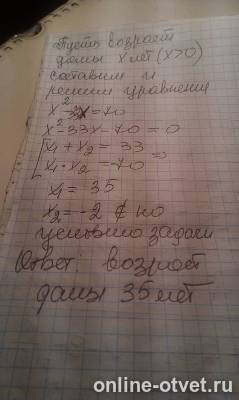 Пусть возраст
дамы x лет (x>0)
составим и
решим уравнение
x² = 70
x² - 33x - 70 = 0
[x₁ + x₂ = 33
x₁ · x₂ = -70 ⇒
x₁ = 35
x₂ = -2 ∉ по
условию задачи
Ответ: возраст
дамы 35 лет
online-otvet.ru